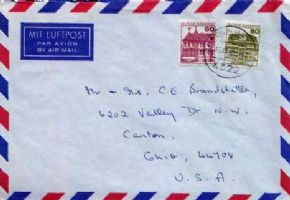 MIT LUFTPOST
PAR AVION
BY AIR MAIL
60
80
Mr - Mrs. C.E. Brandstatter,
4202 Valley Dr N.W.
Canton.
Ohio, 44708
U.S.A.